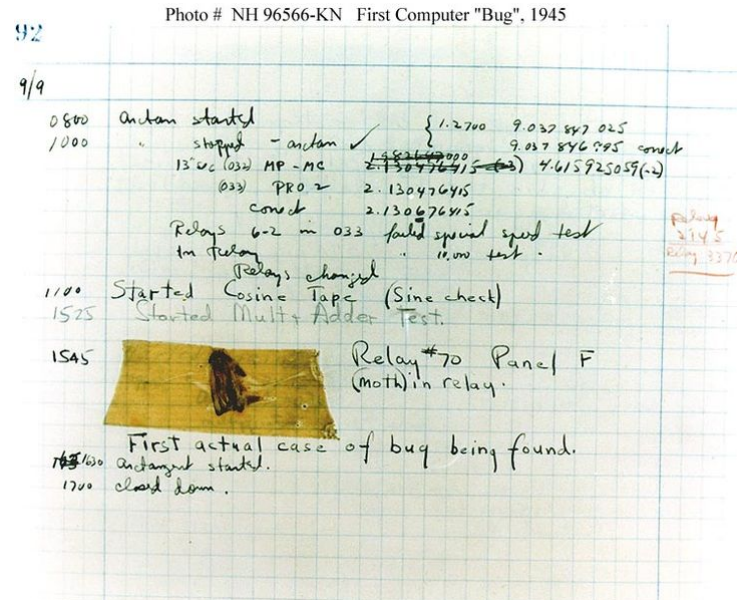 Photo # NH 96566-KN First Computer "Bug", 1945
92
9/9
0800 arctan started
1000 " stopped - arctan ✓ { 1.2700 9.037 847 025
9.037 846 995 correct
13"uc (032) MP-MC 2.130476415 (-3) 4.615925059(-2)
(033) PRO 2 2.130476415
correct 2.130676415
Relays 6-2 in 033 failed special speed test
In Relay " 10.000 test.
Relays changed
Relay
2145
Relay 3370
1100 Started Cosine Tape (Sine check)
1525 Started Mult+Adder Test.
1545 Relay #70 Panel F
(moth) in relay.
First actual case of bug being found.
1630 arctangent started.
1700 closed down.